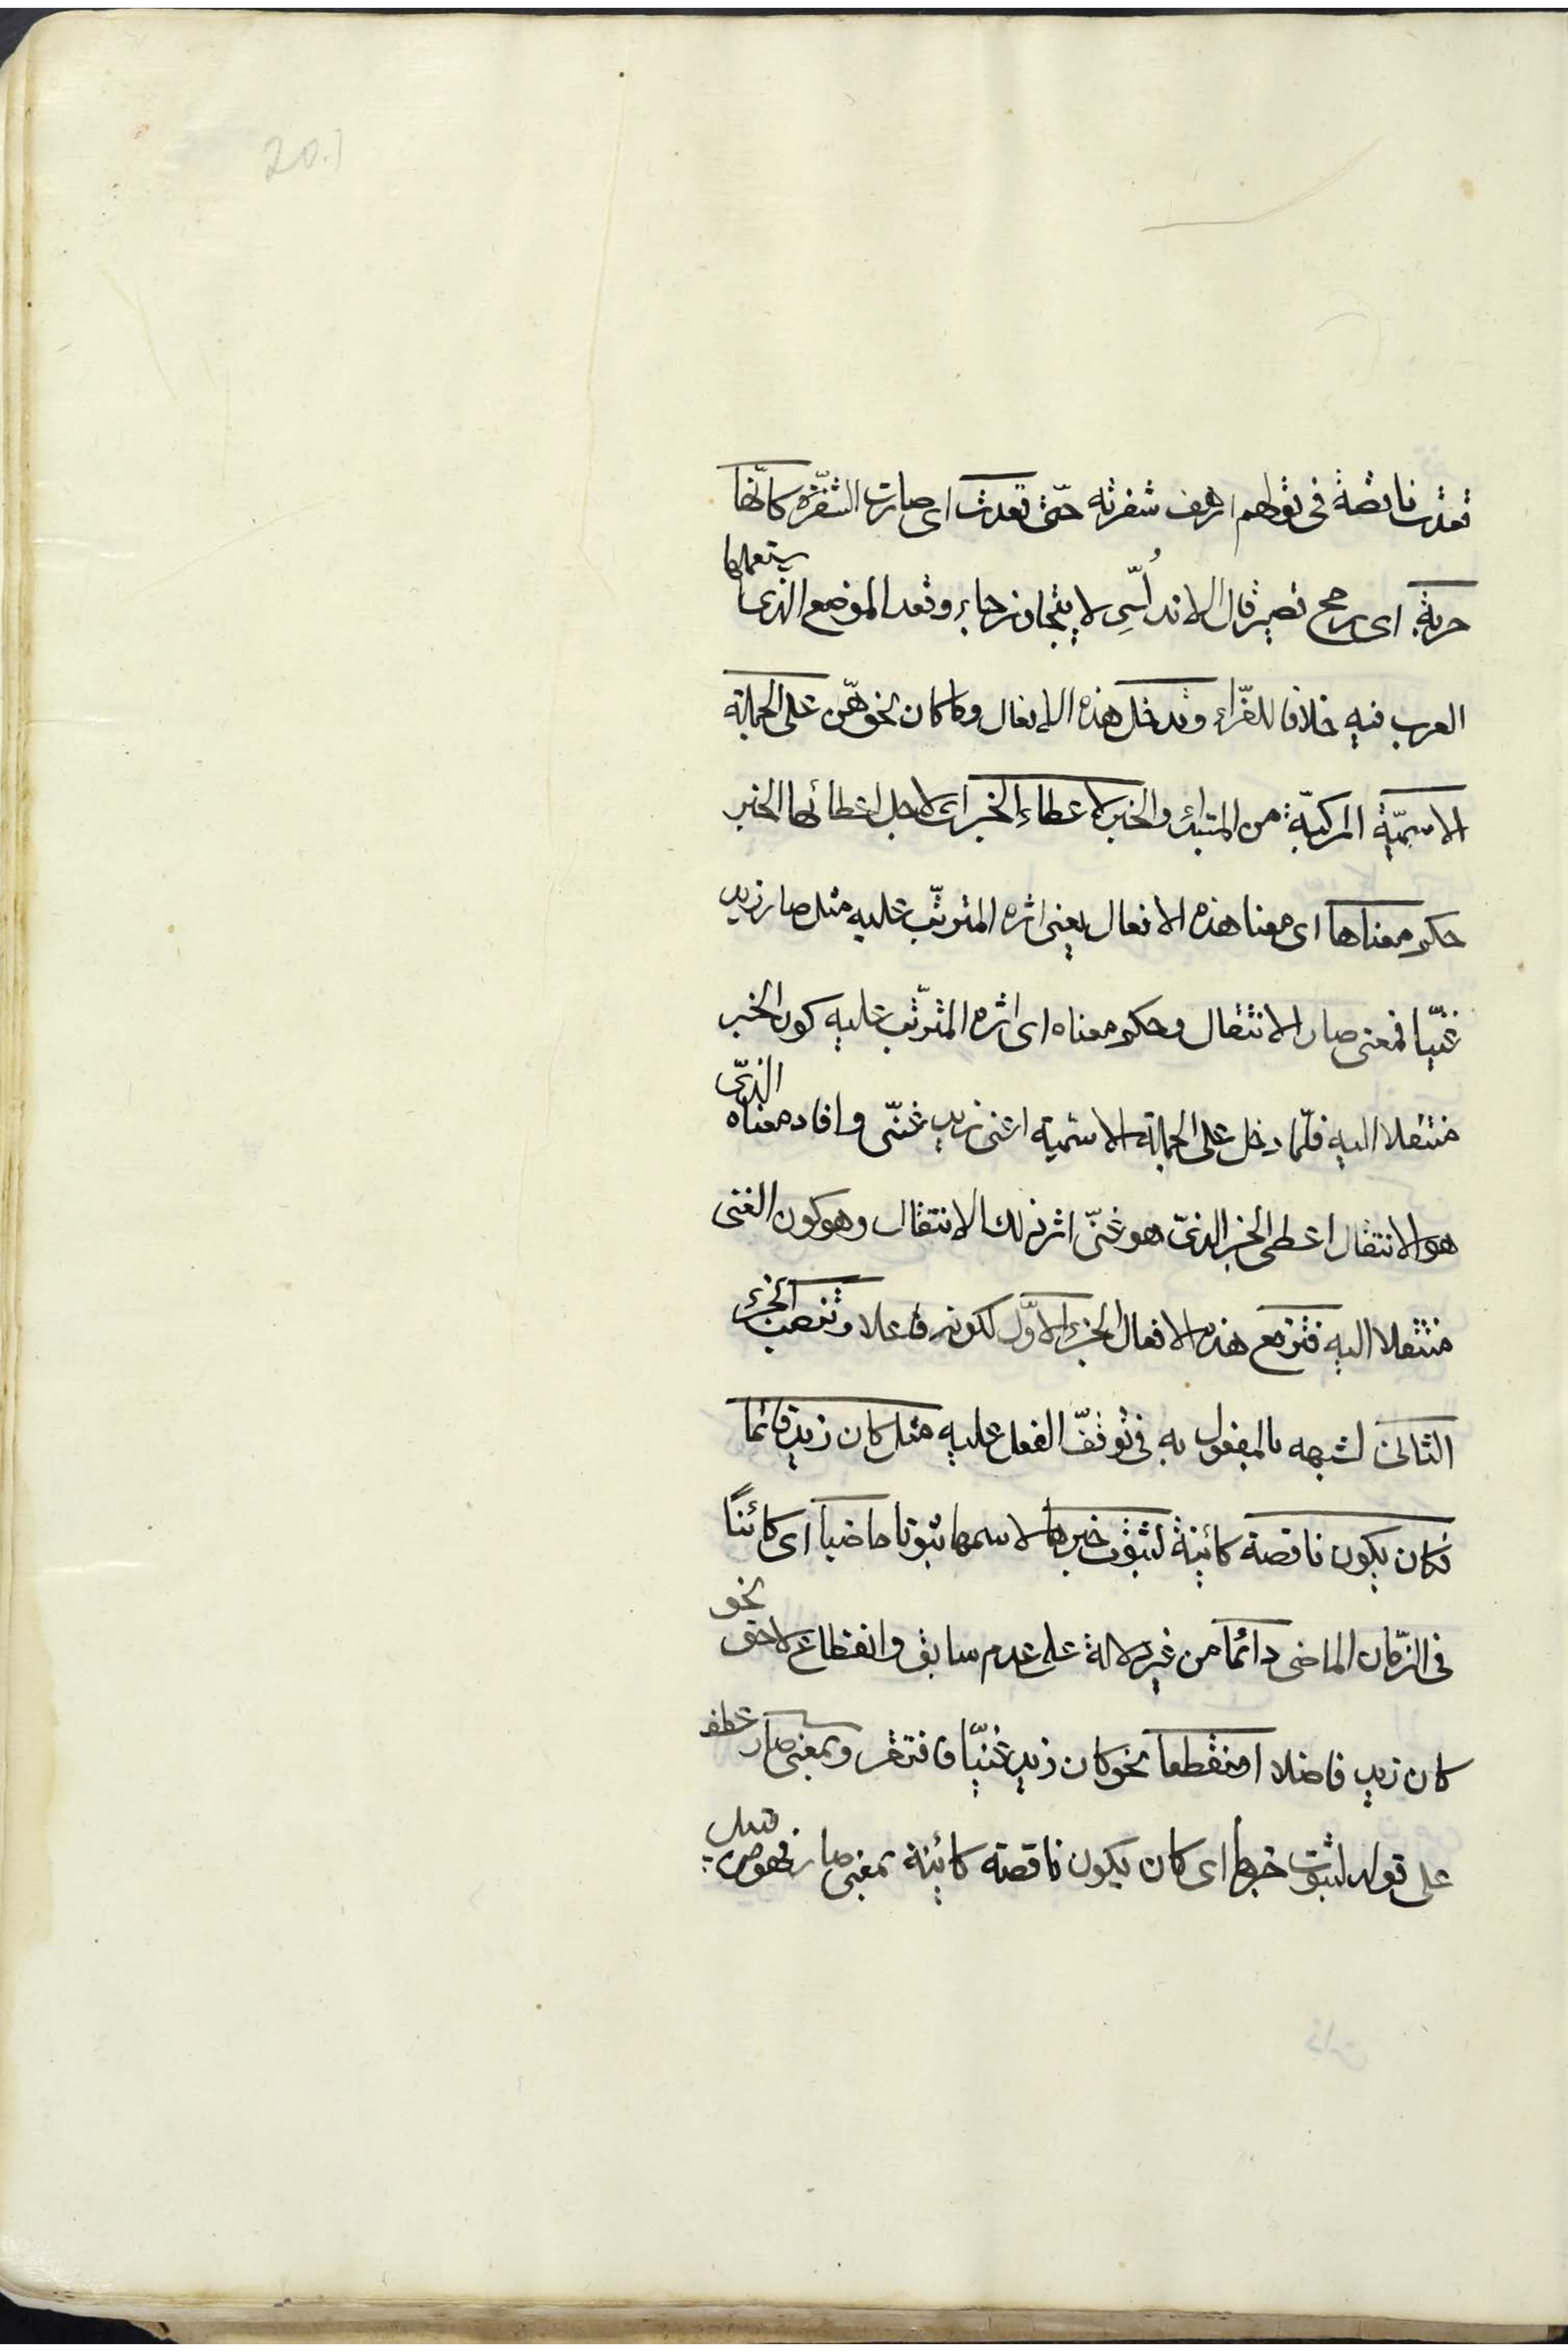 20.1
قعدت ناقصة فى قولهم ارهف شفرته حتّى قعدت اى صارت الشّفرة كانّها
حربة اى رمح قصير قال الاندلسى لا يتجاوز جاء وقعد الموضع الذى يستعملها
العرب فيه خلافا للفرّاء وتدخل هذه الافعال وما كان نحوهنّ على الجملة
الاسميّة المركبّة من المبتدأ والخبر لاعطاء الخبر اى لاجل اعطائها الخبر
حكم معناها اى معنا هذه الافعال يعنى اثره المترتّب عليه مثل صار زيد
غنيّا فمعنى صار الانتقال وحكم معناه اى اثره المترتّب عليه كون الخبر
منتقلا اليه فلمّا دخل على الجملة الاسمية اعنى زيد غنىّ وافاد معناه الذى
هو الانتقال اعطى الخبر الذى هو غنىّ اثر ذلك الانتقال وهو كون الغنى
منتقلا اليه فترفع هذه الافعال الجزء الاوّل لكونه فاعلا وتنصب الجزء
الثانى لشبهه بالمفعول به فى توقّف الفعل عليه مثل كان زيد قائما
فكان يكون ناقصة كائنة لثبوت خبرها لاسمها ثبوتا ماضيا اى كائنًا
فى الزّمان الماضى دائما من غير دلالة على عدم سابق وانقطاع لاحق نحو
كان زيد فاضلا او منقطعا نحو كان زيد غنيّا فافتقر وبمعنى صار عطف
على قوله لثبوت خبرها اى كان يكون ناقصة كائنة بمعنى صار فهو من قبيل